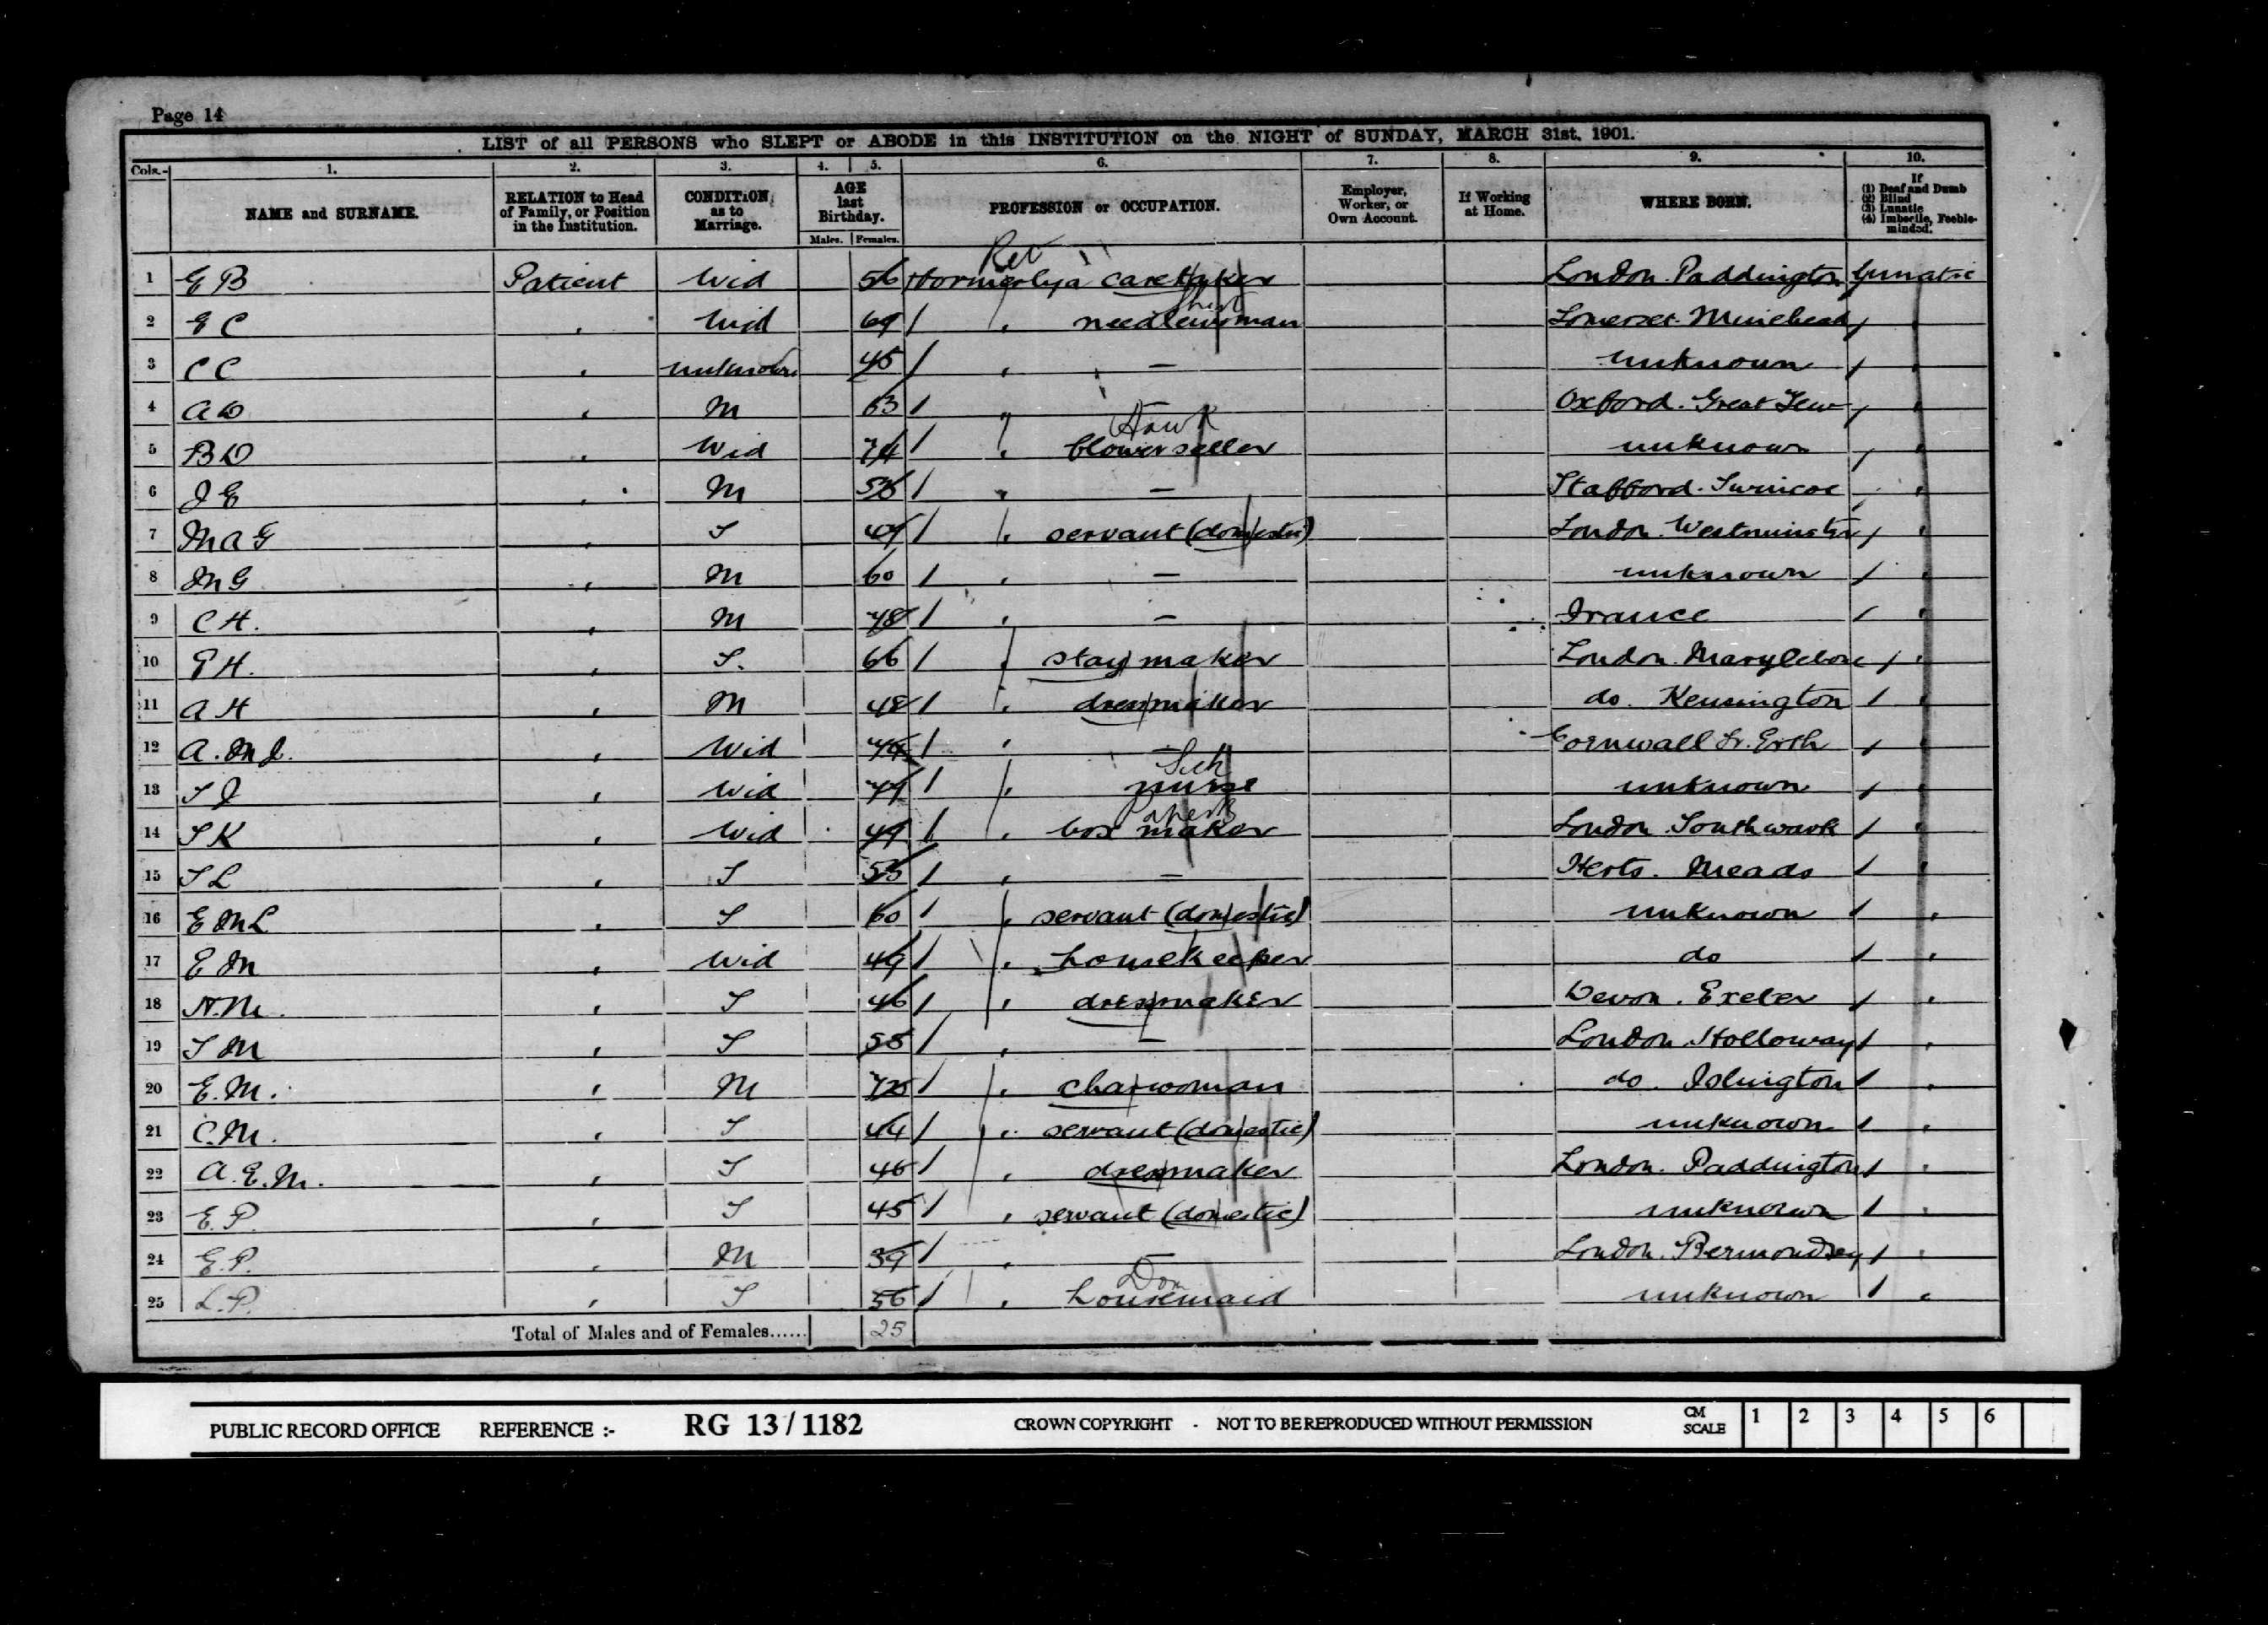 Page 14
LIST of all PERSONS who SLEPT or ABODE in this INSTITUTION on the NIGHT of SUNDAY, MARCH 31st, 1901.
Cols.- 1. 2. 3. 4. 5. 6. 7. 8. 9. 10.
NAME and SURNAME. RELATION to Head of Family, or Position in the Institution. CONDITION as to Marriage. AGE last Birthday. Males. Females. PROFESSION or OCCUPATION. Employer, Worker, or Own Account. If Working at Home. WHERE BORN. If (1) Deaf and Dumb (2) Blind (3) Lunatic (4) Imbecile, Feeble-minded.
Ret
1 E B Patient Wid 56 Formerly a caretaker London Paddington Lunatic
Shirt
2 E C " Wid 69 " needlewoman Somerset Minehead "
3 C C " unknown 45 " — unknown "
4 A D " M 63 " — Oxford. Great Tew "
Hawk
5 B D " Wid 74 " flower seller unknown "
6 J E " M 56 " — Stafford. "
7 M A G " S 49 " servant (domestic) London. Westminster "
8 M G " M 60 " — unknown "
9 C H. " M 48 " — France "
10 E H. " S. 66 " stay maker London Marylebone "
11 A H " M 48 " dressmaker do. Kensington "
12 A. M J. " Wid " — Cornwall St. Erth "
Sick
13 S J " Wid 77 " nurse unknown "
Paper
14 S K " Wid 49 " box maker London Southwark "
15 S L " S 53 " — Herts. Meads "
16 E M L " S 60 " servant (domestic) unknown "
17 E M " Wid 49 " housekeeper do "
18 N. M. " S 46 " dressmaker Devon. Exeter "
19 S M " S 55 " — London Holloway "
20 E. M. " M " charwoman do. Islington "
21 C. M. " S 44 " servant (domestic) unknown "
22 A. E. M. " S 46 " dressmaker London. Paddington "
23 E. P. " S 45 " servant (domestic) unknown "
24 E. P. " M 39 " — London. Bermondsey "
Dom
25 L. P. " S 56 " housemaid unknown "
Total of Males and of Females...... 25
PUBLIC RECORD OFFICE REFERENCE :- RG 13/1182 CROWN COPYRIGHT - NOT TO BE REPRODUCED WITHOUT PERMISSION CM SCALE 1 2 3 4 5 6